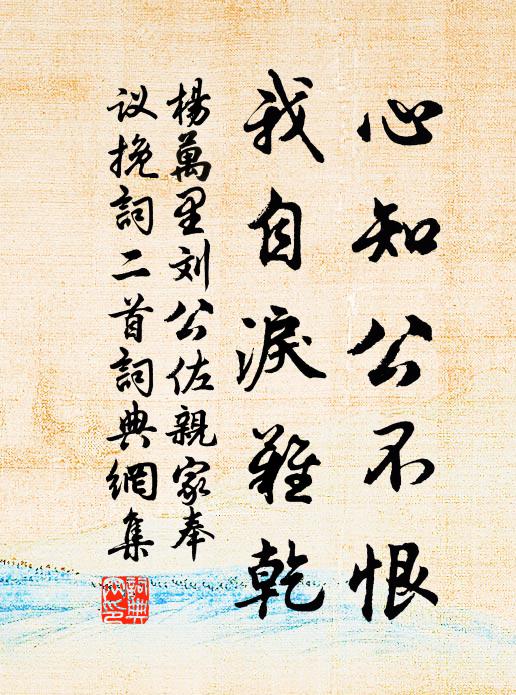 心知公不恨
我自淚難乾
楊萬里刘公佐親家奉
议挽詞二首詞典網集